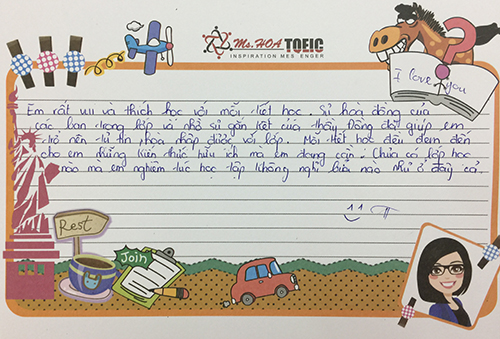 Ms. HOA TOEIC
INSPIRATION MESSENGER
I love you
Em rất vui và thích học với mỗi tiết học. Sự hoà đồng của
các bạn trong lớp và nhờ sự gắn kết của thầy Đồng đã giúp em
trở nên tự tin hoà nhập được với lớp. Mỗi tiết học đều đem đến
cho em những kiến thức hữu ích mà em đang cần. Chưa có lớp học
nào mà em nghiêm túc học lớp không nghỉ bữa nào như ở đây cả.
Rest
Join